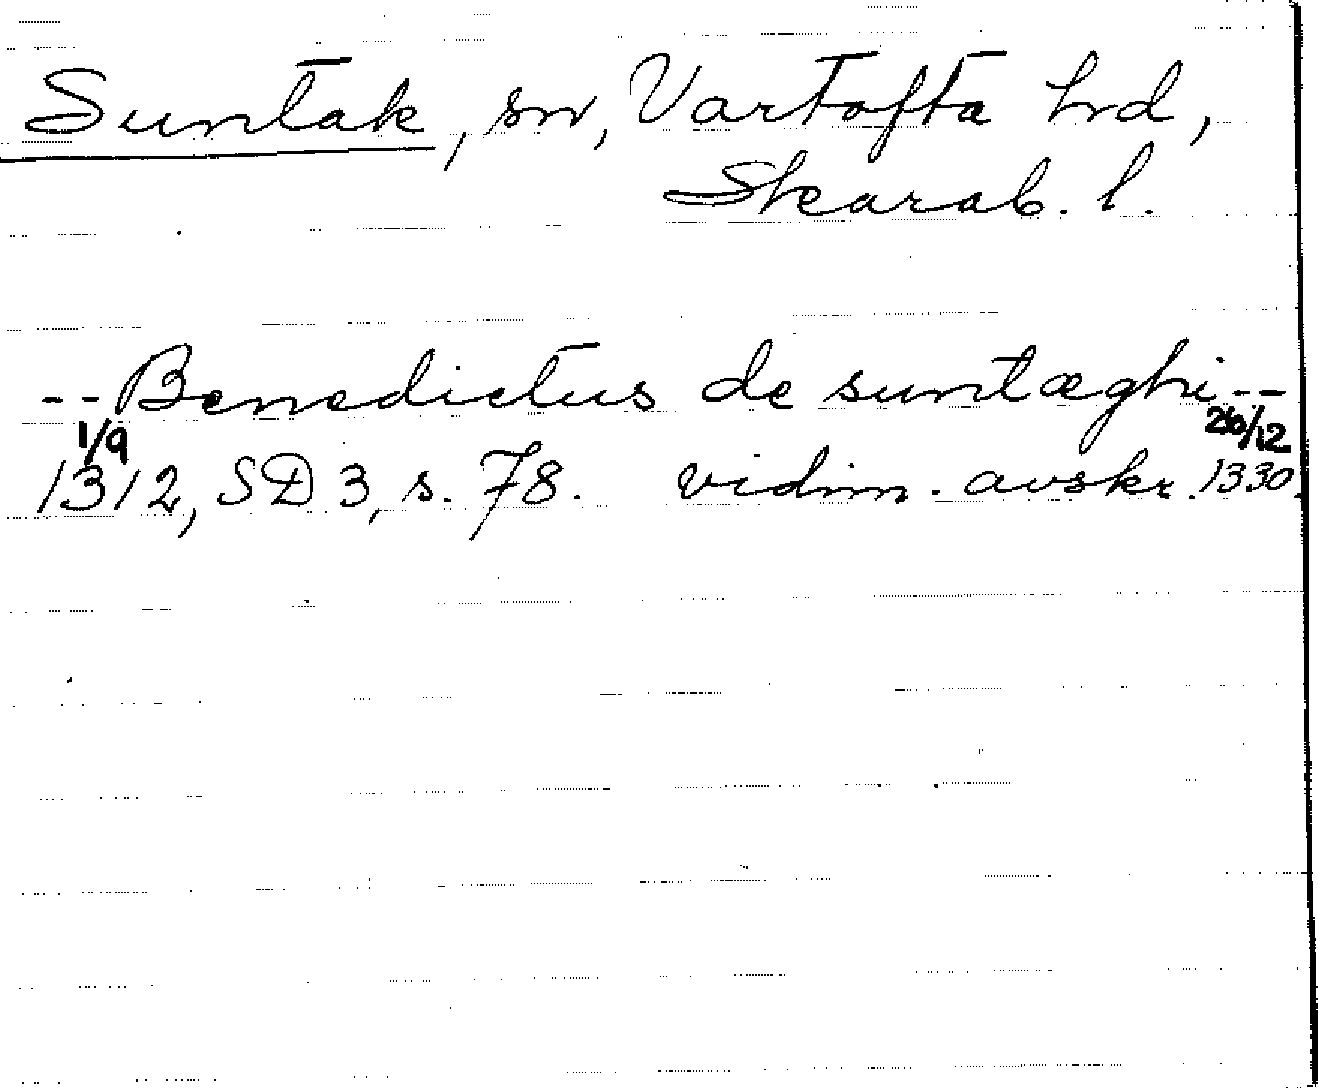 Suntak, sn, Vartofta hrd,
Skarab. l.
-- Benedictus de suntæghi --
1/9 26/12
1312, SD 3, s. 78. vidim. avskr. 1330.